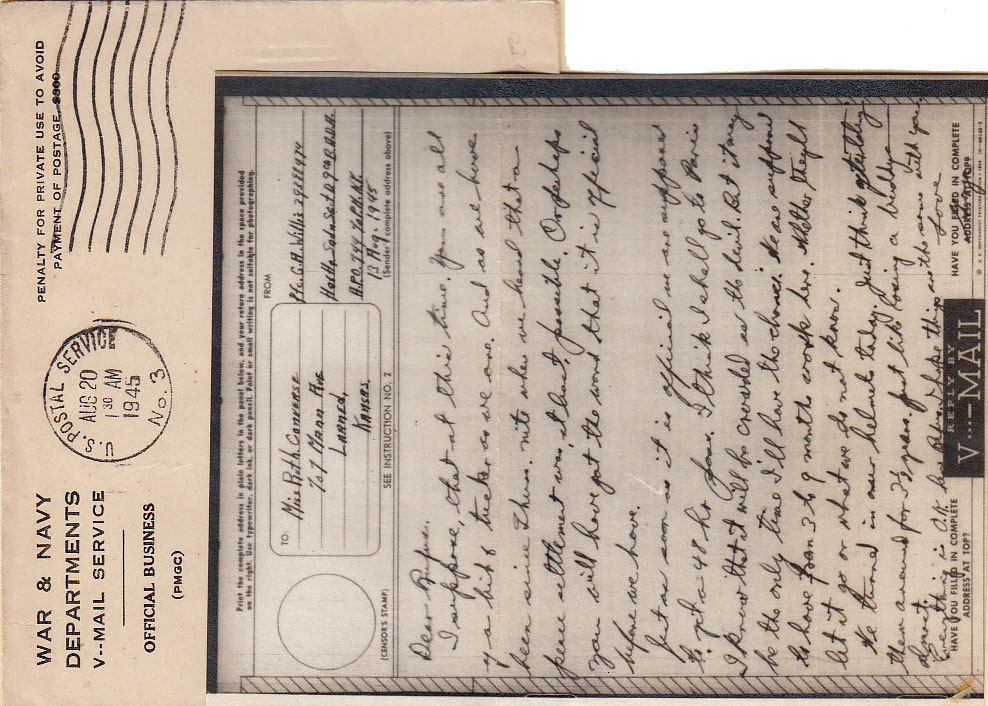 WAR & NAVY
DEPARTMENTS
V--MAIL SERVICE
OFFICIAL BUSINESS
(PMGC)
U.S. POSTAL SERVICE
AUG 20
1 30 AM
1945
No. 3
PENALTY FOR PRIVATE USE TO AVOID
PAYMENT OF POSTAGE $300
Print the complete address in plain letters in the panel below, and your return address in the space provided
on the right. Use typewriter, dark ink, or dark pencil. Faint or small writing is not suitable for photographing.
TO:
Miss Ruth Converse
Mann Ave
Larned,
Kansas.
FROM
Pfc. G.H. Willis
A.P.O. 744 % P.M. N.Y.
13 Aug. 1945
(CENSOR'S STAMP)
SEE INSTRUCTION NO. 2
(Sender's complete address above)
Dear Rufus.
I suppose, that at this time. You are all
a bit as we are. And as we have
been since Thurs. nite when we heard that a
peace settlement was at last, possible. Or perhaps
you will have got the word that it is official
before we have.
but as soon as it is official we are supposed
to get a 48 hr pass. I think I shall go to Paris
I know that it will be crowded as the devil. But it may
be the only time I'll have the chance. We are supposed
to have from 3 to 9 months work here. Wether they'll
let it go or what we do not know.
We turned in our helmets today. Just think
them around for years. Just like losing a buddy
almost.
Everything is O.K. here Rufus, hope things are the same with you.
Love
HAVE YOU FILLED IN COMPLETE
ADDRESS AT TOP?
REPLY BY
V...-MAIL
HAVE YOU FILLED IN COMPLETE
ADDRESS AT TOP?